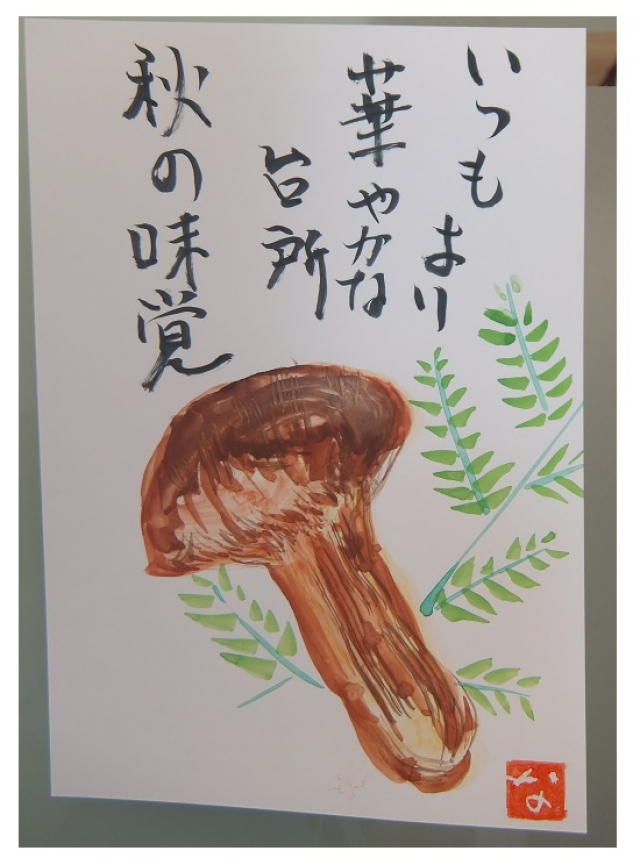 いつも
より
華やかな
台所
秋の味覚